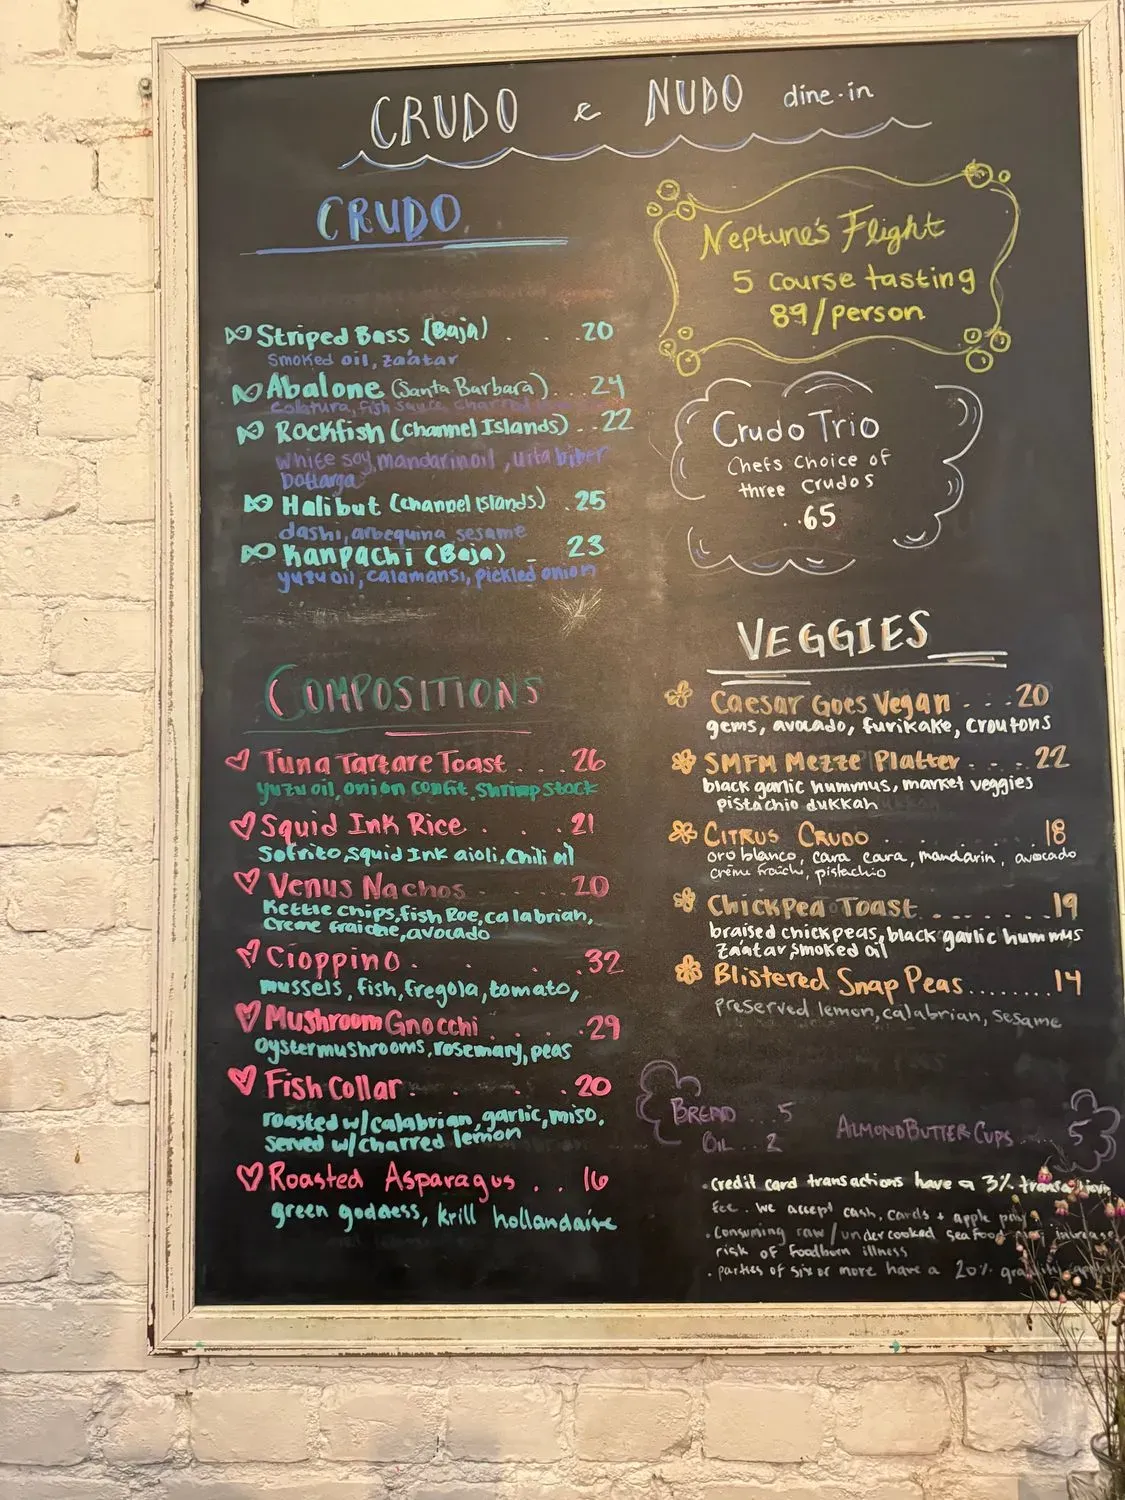 CRUDO & NUDO dine-in
CRUDO
Striped Bass (Baja) . . . .20
Smoked oil, za'atar
Abalone (Santa Barbara) . . 24
colatura, fish sauce, charred
Rockfish (Channel Islands) . . 22
white soy, mandarin oil, urfa biber
bottarga
Halibut (Channel Islands) . 25
dashi, arbequina, sesame
Kanpachi (Baja) . 23
yuzu oil, calamansi, pickled onion
COMPOSITIONS
Tuna Tartare Toast . . . 26
yuzu oil, onion confit, shrimp stock
Squid Ink Rice . . . .21
Sofrito, squid Ink aioli, Chili oil
Venus Nachos . . . 20
Kettle chips, fish Roe, calabrian,
Creme fraiche, avocado
Cioppino . . . .32
mussels, fish, fregola, tomato,
Mushroom Gnocchi . . . .29
oyster mushrooms, rosemary, peas
Fish Collar . . . .20
roasted w/calabrian, garlic, miso,
served w/charred lemon
Roasted Asparagus . . 16
green goddess, krill hollandaise
Neptune's Flight
5 course tasting
89/person
Crudo Trio
Chefs Choice of
three Crudos
. . 65
VEGGIES
Caesar Goes Vegan . . . 20
gems, avocado, furikake, croutons
SMFM Mezze Platter . . . . 22
black garlic hummus, market veggies
pistachio dukkah
CITRUS CRUDO . . . . . . . 18
oro blanco, cara cara, mandarin, avocado
crème fraîche, pistachio
Chickpea Toast . . . . . . . 19
braised chickpeas, black garlic hummus
za'atar, smoked oil
Blistered Snap Peas . . . . . . . . 14
preserved lemon, calabrian, sesame
BREAD . . . 5
OIL . . 2
ALMOND BUTTER CUPS . . . 5
. Credit card transactions have a 3% transaction
fee. We accept cash, cards + apple pay
. Consuming raw/undercooked seafood may increase
risk of foodborn illness
. parties of six or more have a 20% gratuity